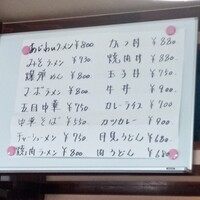 みそラーメン ¥750
爆弾めん ¥800
マーボラーメン ¥800
五目中華 ¥750
中華そば ¥550
チャーシューメン ¥750
焼肉ラーメン ¥800
カツ丼 ¥880
焼肉丼 ¥880
玉子丼 ¥750
牛丼 ¥900
カレーライス ¥700
カツカレー ¥900
月見うどん ¥680
肉うどん ¥680